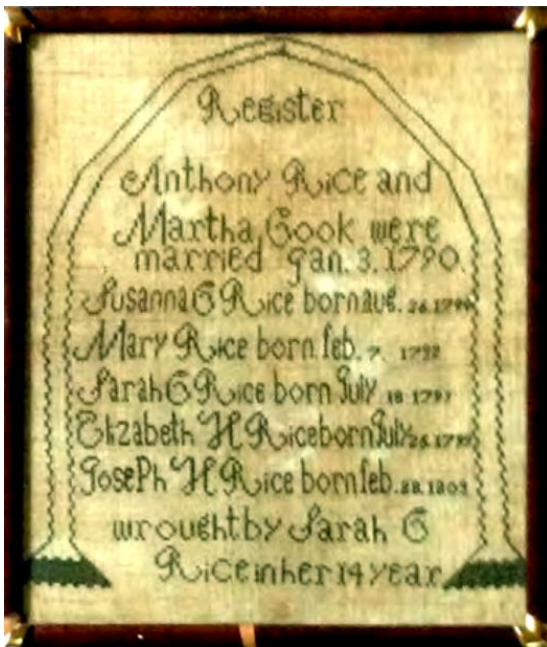 Register
Anthony Rice and
Martha Cook were
married Jan. 3. 1790
Susanna C Rice born aug. 26.
Mary Rice born feb. 7.
Sarah C Rice born July 18
Elizabeth H Rice born July
Joseph H Rice born feb. 1803
wrought by Sarah C
Rice in her 14 year